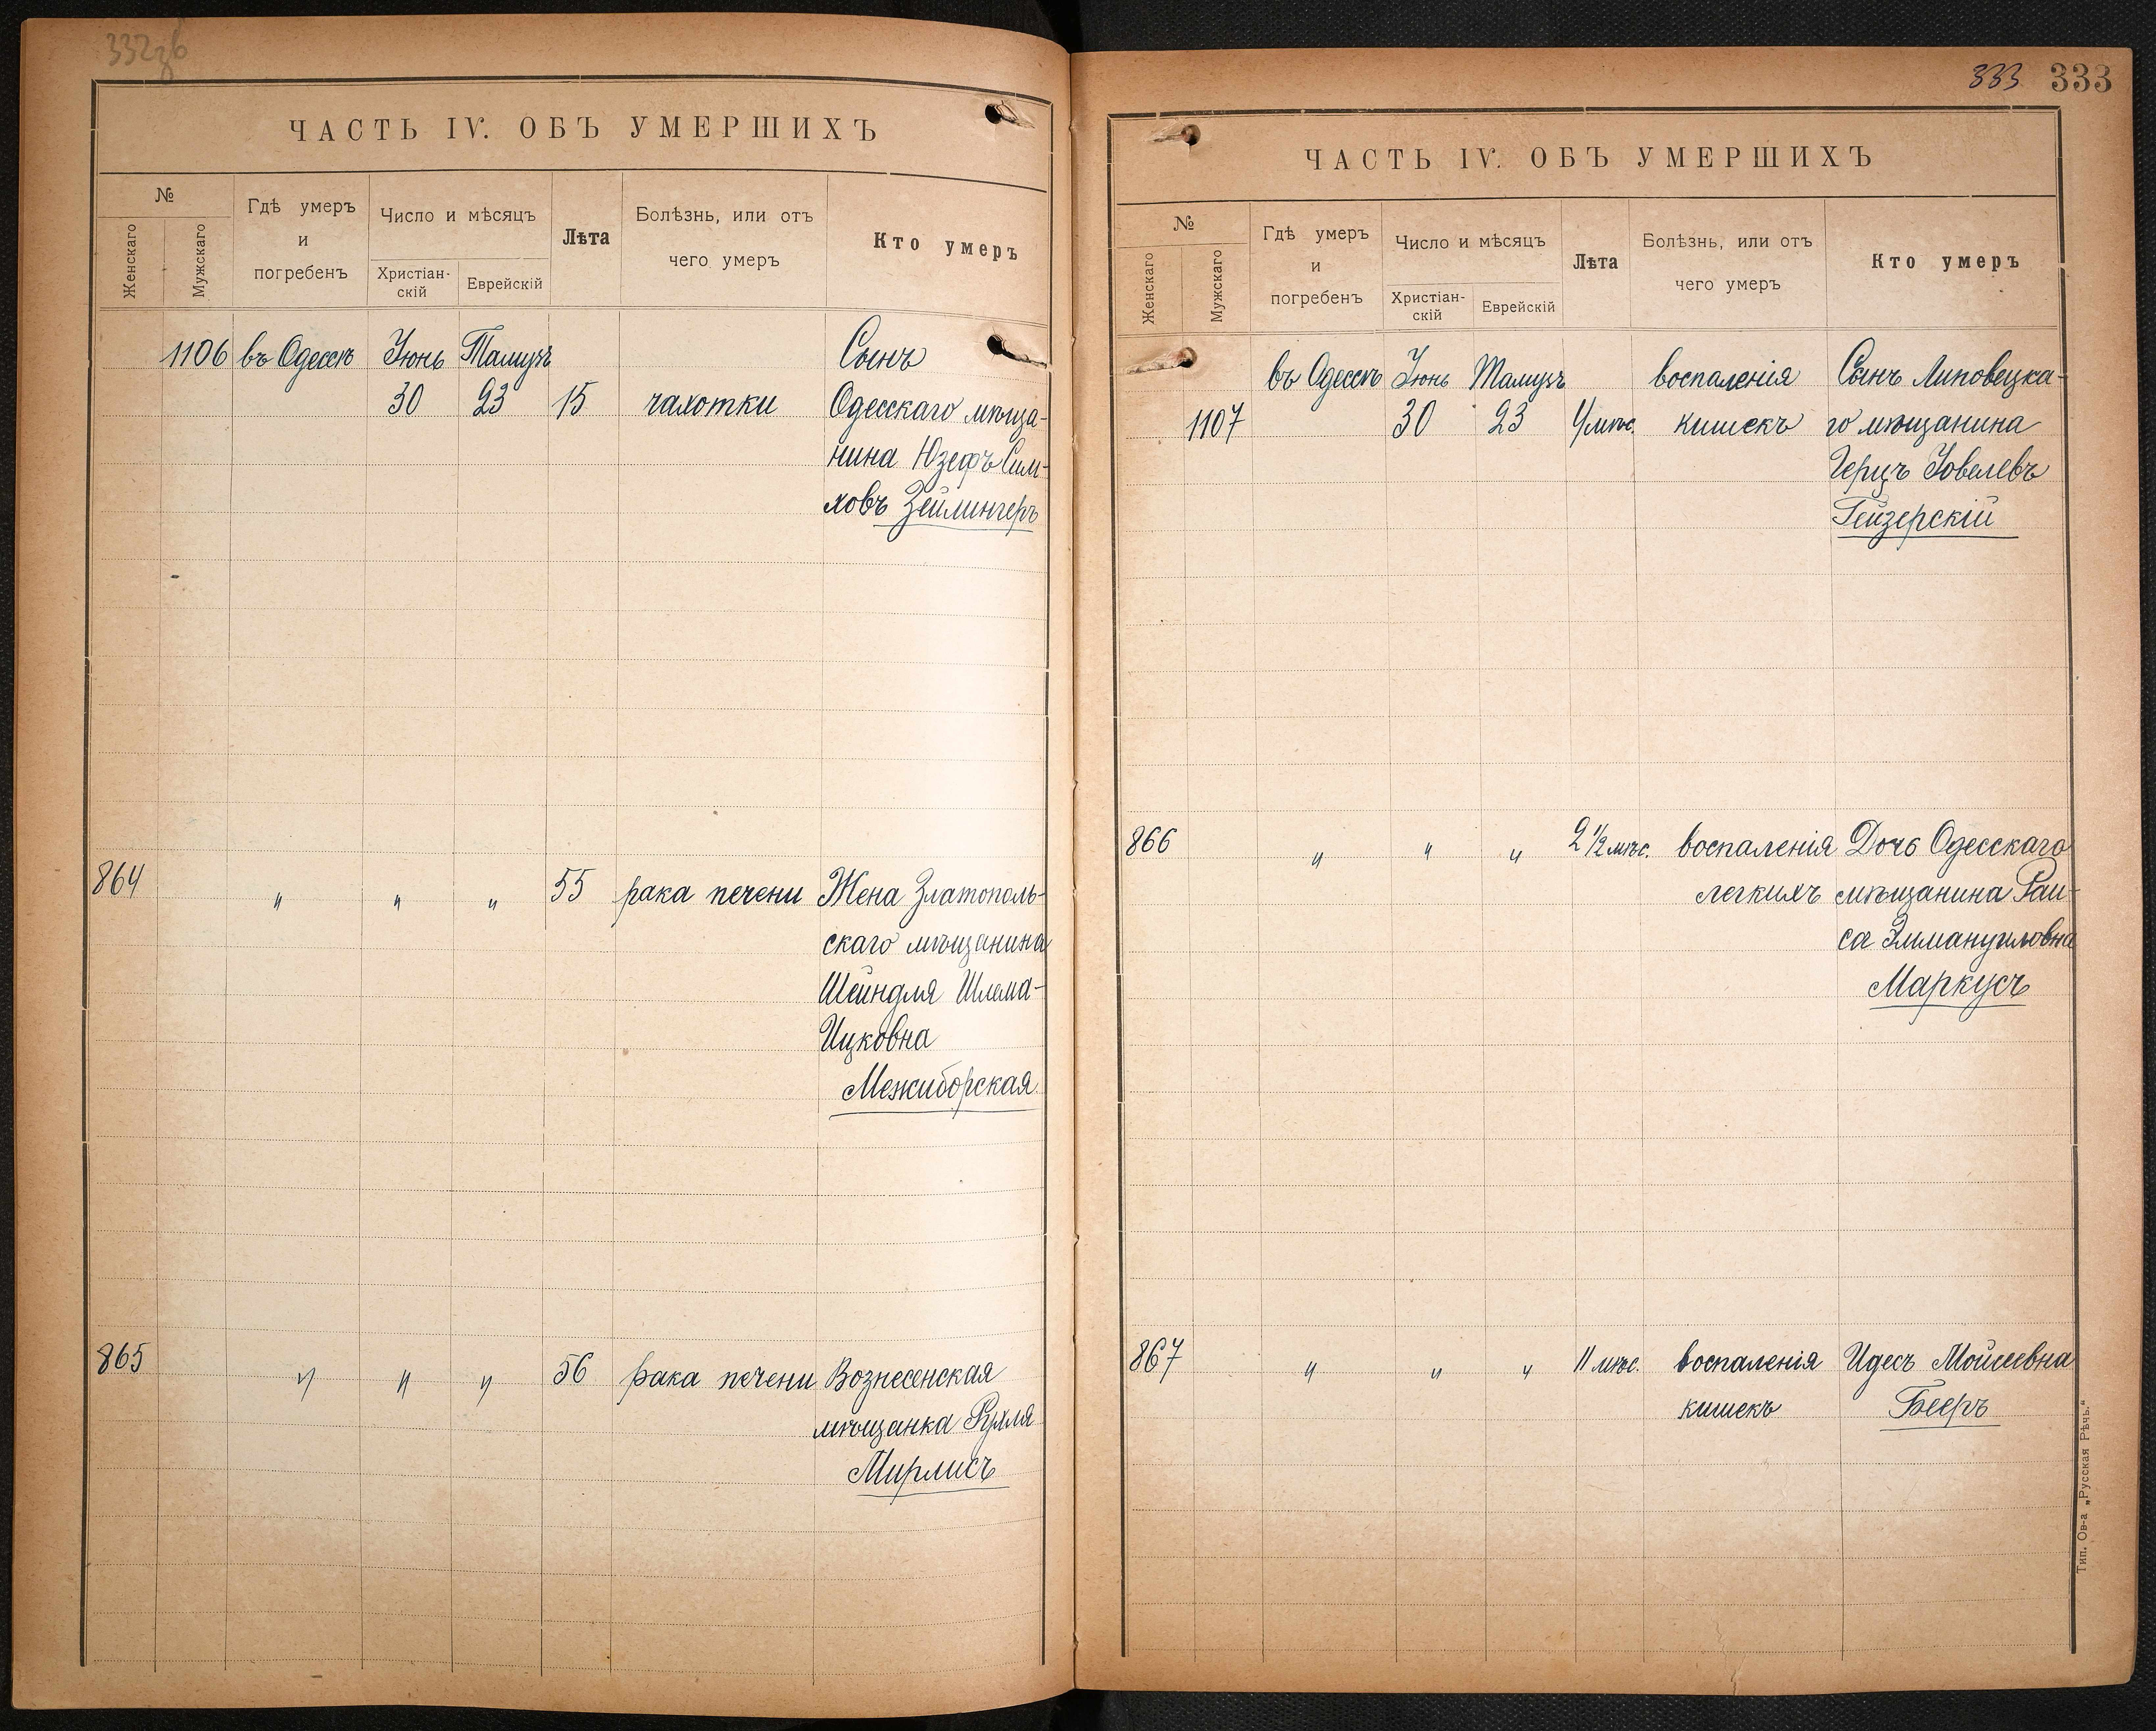 332зв
ЧАСТЬ IV. ОБЪ УМЕРШИХЪ
№
Женскаго
Мужскаго
Гдѣ умеръ
и
погребенъ
Число и мѣсяцъ
Христіан-
скій
Еврейскій
Лѣта
Болѣзнь, или отъ
чего умеръ
Кто умеръ
1106 въ Одессѣ Іюнь Тамузъ Сынъ
30 23 15 чахотки Одесскаго мѣща-
нина Юзефъ Сим-
ховъ Зейлингеръ
864 " " " 55 рака печени Жена Златополь-
скаго мѣщанина
Шейндля Шлема-
Ицковна
Межиборская
865 " " " 56 рака печени Вознесенская
мѣщанка Рухля
Мирлисъ
333 333
ЧАСТЬ IV. ОБЪ УМЕРШИХЪ
№
Женскаго
Мужскаго
Гдѣ умеръ
и
погребенъ
Число и мѣсяцъ
Христіан-
скій
Еврейскій
Лѣта
Болѣзнь, или отъ
чего умеръ
Кто умеръ
въ Одессѣ Іюнь Тамузъ воспаленія Сынъ Липовецка-
1107 30 23 мѣс. кишекъ го мѣщанина
Герцъ Іовелевъ
Гейзерскій
866 " " " 2 1/2 мѣс. воспаленія Дочь Одесскаго
легкихъ мѣщанина Раи-
са Эммануиловна
Маркусъ
867 " " " 11 мѣс. воспаленія Идесъ Мойсеевна
кишекъ Бееръ
Тип. Ов-а „Русская Рѣчь."